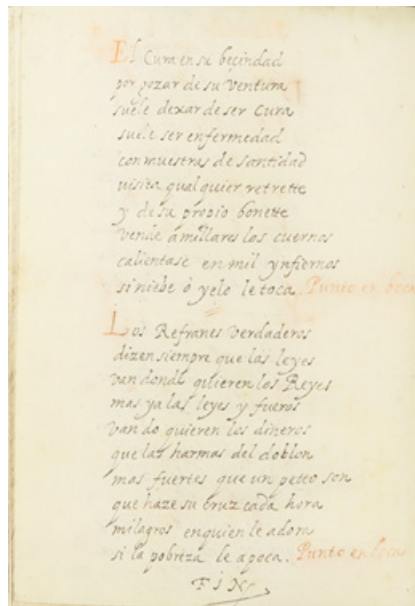 El Cura en su becindad
por gozar de su ventura
suele dexar de ser Cura
suele ser enfermedad
con muestras de santidad
visita qualquier retrette
y de su propio bonette
vende a millares los cuernos
calientase en mil ynfiernos
si niebe ò yelo le toca. Punto en boca
Los Refranes verdaderos
dizen siempre que las leyes
van donde quieren los Reyes
mas ya las leyes y fueros
van do quieren los dineros
que las harmas del doblon
mas fuertes que un petto son
que haze su cruz cada hora
milagros en quien le adora
si la pobreza le apoca. Punto en boca
FIN